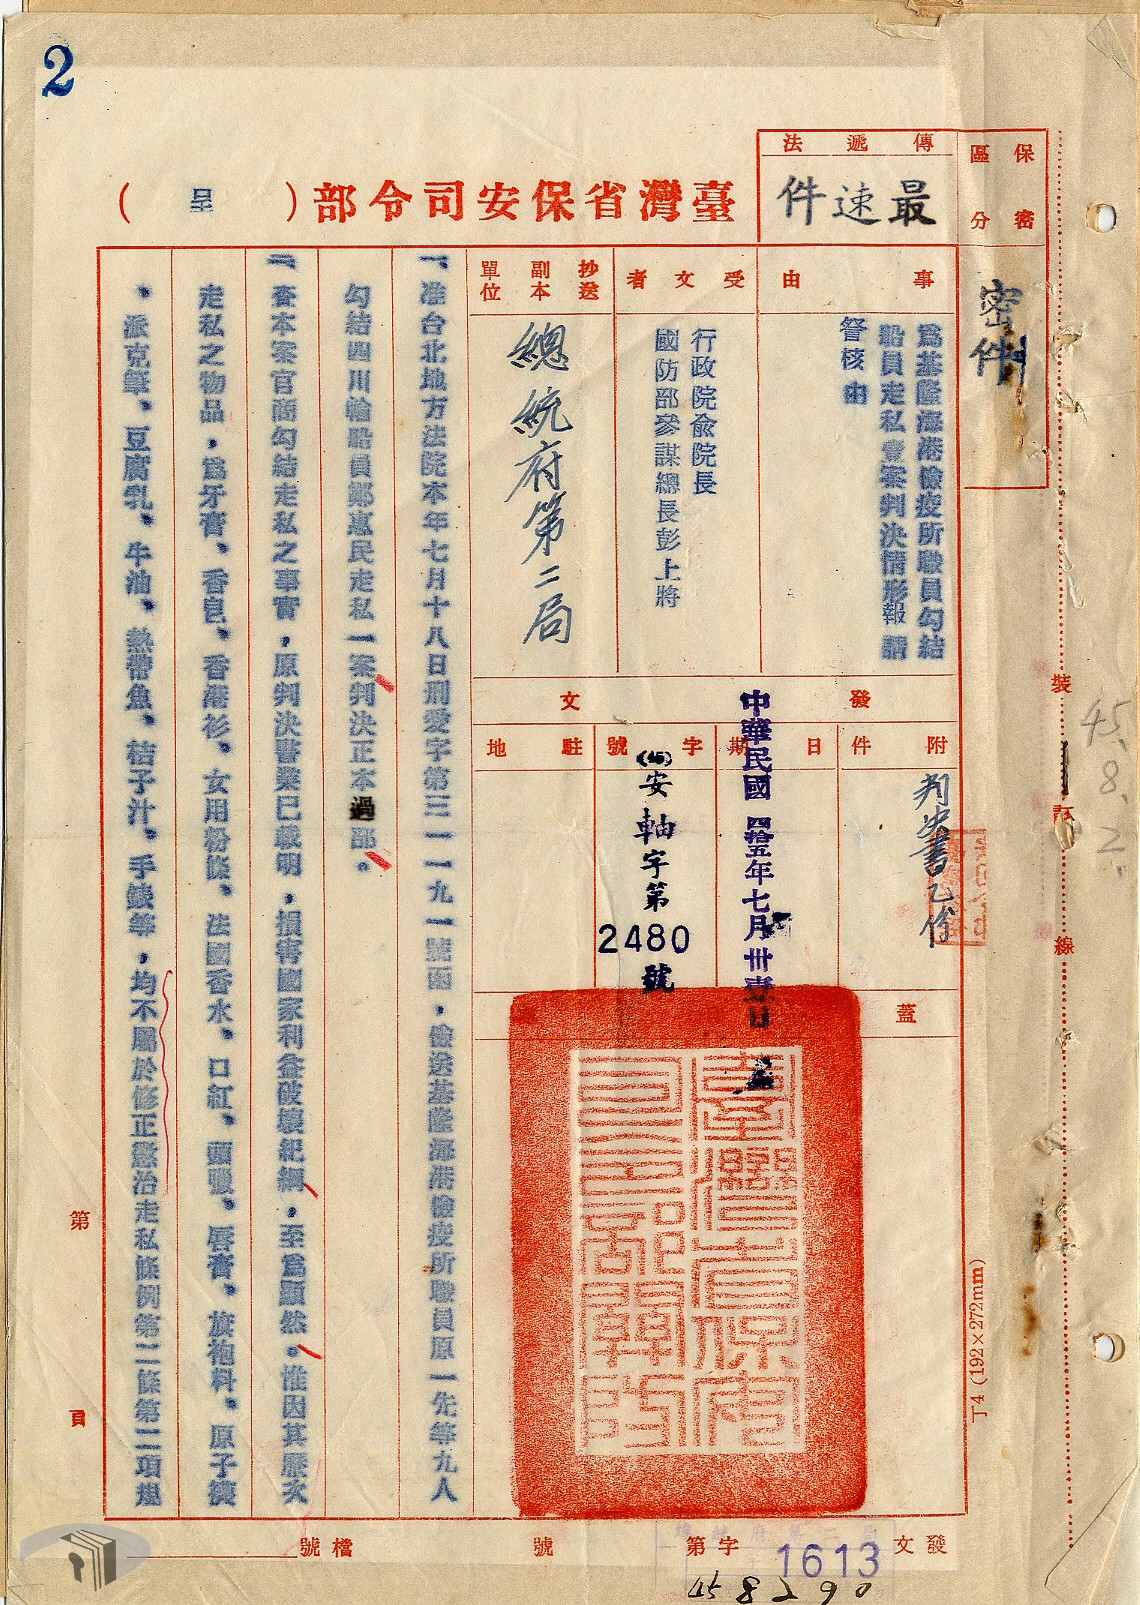 2
保密區分
密件
傳遞法
最速件
臺灣省保安司令部(呈)
事由
爲基隆海港檢疫所職員勾結
船員走私壹案判決情形報請
督核由
受文者
行政院俞院長
國防部參謀總長彭上將
抄送副本單位
總統府第二局
發文
附件
判決書乙份
日期
中華民國四拾五年七月卅壹日
字號
(45)安軸字第2480號
駐地
蓋
一、准台北地方法院本年七月十八日刑愛字第三一一九一號函，檢送基隆海港檢疫所職員原一先等九人
勾結四川輪船員鄭惠民走私一案判決正本過部。
查本案官商勾結走私之事實，原判決書業已載明，損害國家利益破壞紀綱，至爲顯然。惟因其歷次
走私之物品，爲牙膏、香皂、香港衫、女用粉條、法國香水、口紅、頭髮、唇膏、旗袍料、原子襪
、派克筆、豆腐乳、牛油、熱帶魚、桔子汁、手錶等，均不屬於修正懲治走私條例第二條第二項規
第 頁
裝訂線
45.8.2.
丁4 (192×272mm)
發文 字第 號
檔號
總統府第二局
1613
458290